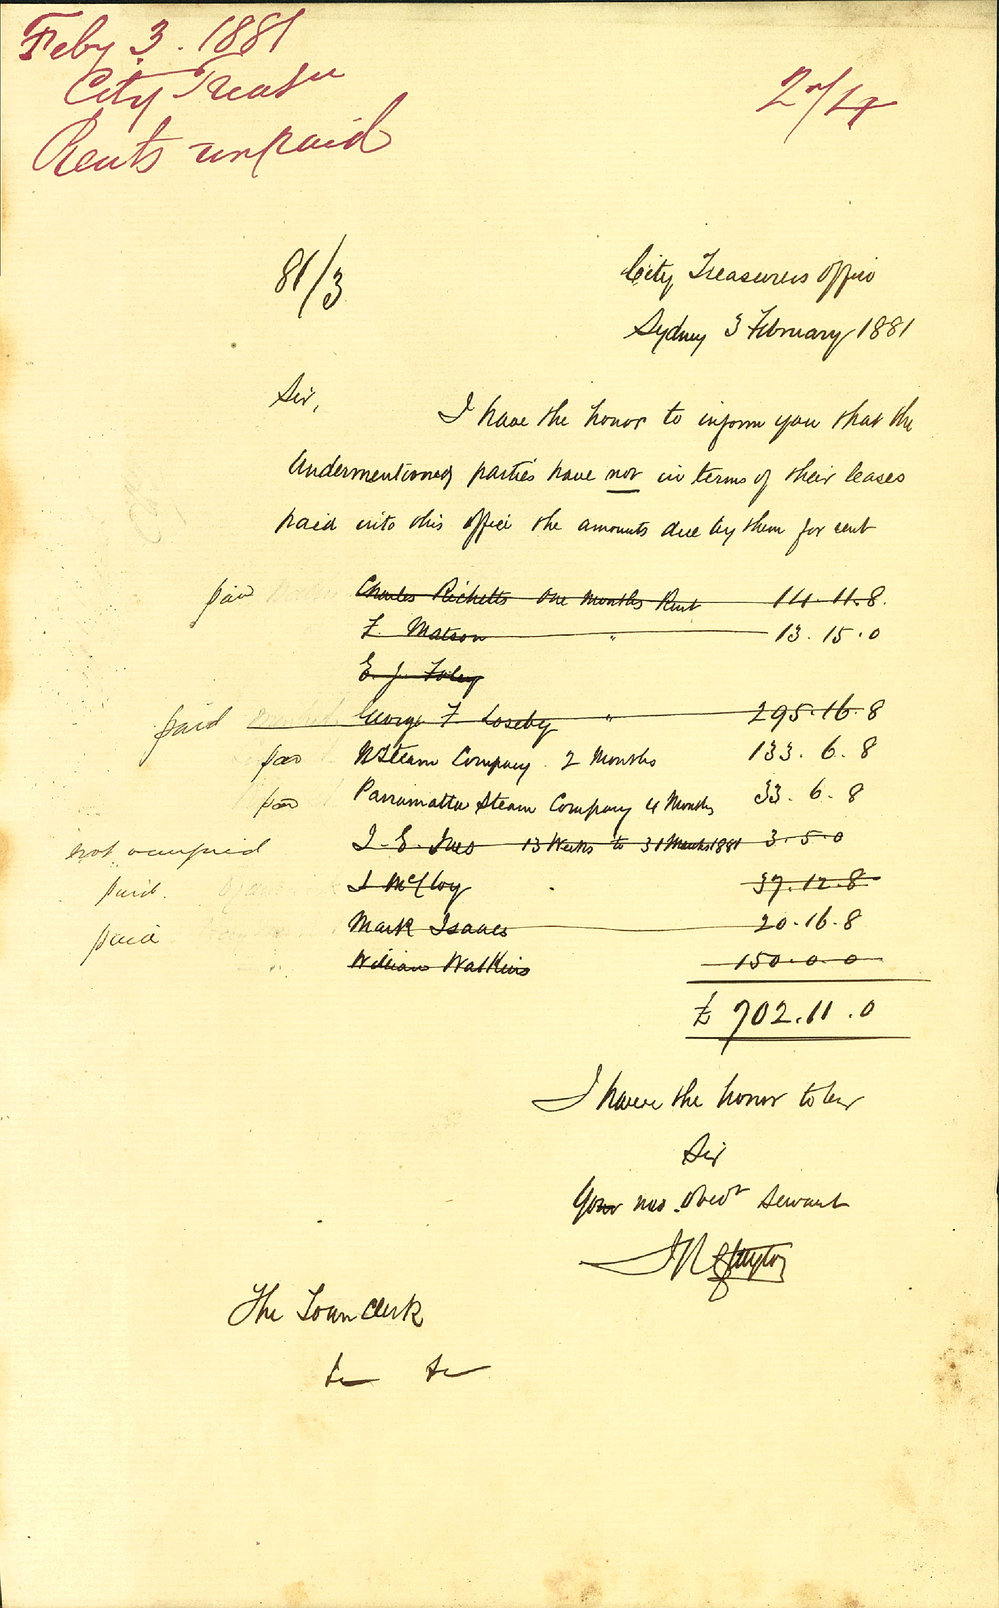 Feby 3. 1881
City Treasr
Rents unpaid
2n/4
81/3
City Treasurers Office
Sydney 3 February 1881
Sir,
I have the honor to inform you that the
Undermentioned parties have not in terms of their leases
paid into this office the amounts due by them for rent
paid Charles Ricketts One Months Rent 14. 11. 8.
F. Matson " 13. 15. 0
E. J. Foley
paid George F. Loseby " 295. 16. 8
paid N Steam Company 2 Months 133. 6. 8
paid Parramatta Steam Company 4 Months 33. 6. 8
not occupied J. E. Ives 13 Weeks to 31 March 1881 3. 5. 0
paid. J McCloy 37. 12. 8
paid Mark Isaacs 20. 16. 8
William Watkins 150. 0. 0
£ 702. 11. 0
I have the honor to be
Sir
Your mos. Obedt Servant
The Town Clerk